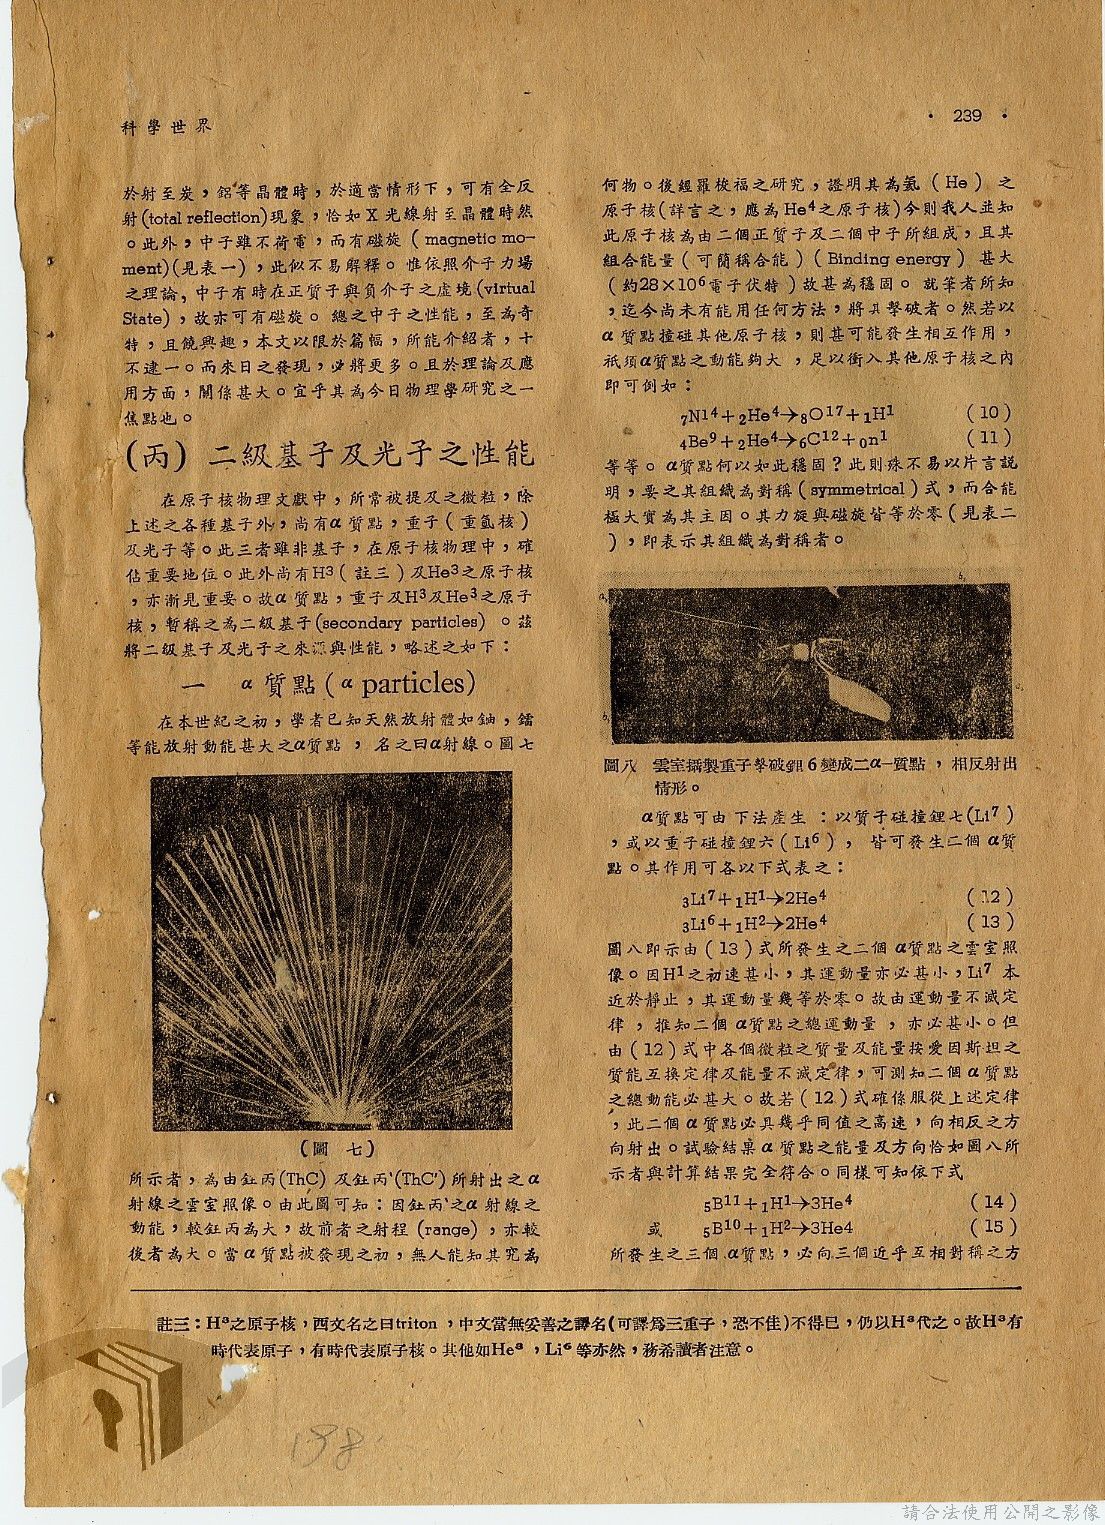 科學世界
· 239 ·
於射至炭，鋁等晶體時，於適當情形下，可有全反
射(total reflection)現象，恰如X光線射至晶體時然
。此外，中子雖不荷電，而有磁旋（magnetic mo-
ment)(見表一)，此似不易解釋。惟依照介子力場
之理論，中子有時在正質子與負介子之虛境(virtual
State)，故亦可有磁旋。總之中子之性能，至為奇
特，且饒興趣，本文以限於篇幅，所能介紹者，十
不逮一。而來日之發現，必將更多。且於理論及應
用方面，關係甚大。宜乎其為今日物理學研究之一
焦點也。
(丙) 二級基子及光子之性能
在原子核物理文獻中，所常被提及之微粒，除
上述之各種基子外，尚有α質點，重子（重氫核）
及光子等。此三者雖非基子，在原子核物理中，確
佔重要地位。此外尚有H3（註三）及He3之原子核
，亦漸見重要。故α質點，重子及H3及He3之原子
核，暫稱之為二級基子(secondary particles) 。茲
將二級基子及光子之來源與性能，略述之如下：
一 α質點(α particles)
在本世紀之初，學者已知天然放射體如鈾，鐳
等能放射動能甚大之α質點，名之曰α射線。圖七
(圖 七)
所示者，為由釷丙(ThC) 及釷丙'(ThC')所射出之α
射線之雲室照像。由此圖可知：因釷丙'之α射線之
動能，較釷丙為大，故前者之射程 (range)，亦較
後者為大。當α質點被發現之初，無人能知其究為
何物。後經羅梭福之研究，證明其為氦（He）之
原子核(詳言之，應為He4之原子核)今則我人並知
此原子核為由二個正質子及二個中子所組成，且其
組合能量（可簡稱合能）（Binding energy）甚大
（約28×10⁶電子伏特）故甚為穩固。就筆者所知
，迄今尚未有能用任何方法，將其擊破者。然若以
α質點撞碰其他原子核，則甚可能發生相互作用，
祇須α質點之動能夠大，足以衝入其他原子核之內
即可例如：
₇N¹⁴+₂He⁴→₈O¹⁷+₁H¹ （10）
₄Be⁹+₂He⁴→₆C¹²+₀n¹ （11）
等等。α質點何以如此穩固？此則殊不易以片言說
明，要之其組織為對稱（symmetrical）式，而合能
極大實為其主因。其力旋與磁旋皆等於零（見表二
），即表示其組織為對稱者。
圖八 雲室攝製重子擊破鋰6變成二α-質點，相反射出
情形。
α質點可由下法產生：以質子碰撞鋰七(Li⁷)
，或以重子碰撞鋰六（Li⁶），皆可發生二個α質
點。其作用可各以下式表之：
₃Li⁷+₁H¹→2He⁴ （12）
₃Li⁶+₁H²→2He⁴ （13）
圖八即示由（13）式所發生之二個α質點之雲室照
像。因H¹之初速甚小，其運動量亦必甚小，Li⁷本
近於靜止，其運動量幾等於零。故由運動量不滅定
律，推知二個α質點之總運動量，亦必甚小。但
由（12）式中各個微粒之質量及能量按愛因斯坦之
質能互換定律及能量不滅定律，可測知二個α質點
之總動能必甚大。故若（12）式確係服從上述定律
，此二個α質點必具幾乎同值之高速，向相反之方
向射出。試驗結果α質點之能量及方向恰如圖八所
示者與計算結果完全符合。同樣可知依下式
₅B¹¹+₁H¹→3He⁴ （14）
或 ₅B¹⁰+₁H²→3He4 （15）
所發生之三個α質點，必向三個近乎互相對稱之方
註三：H³之原子核，西文名之曰triton，中文當無妥善之譯名(可譯爲三重子，恐不佳)不得已，仍以H³代之。故H³有
時代表原子，有時代表原子核。其他如He³，Li⁶等亦然，務希讀者注意。
138
請合法使用公開之影像